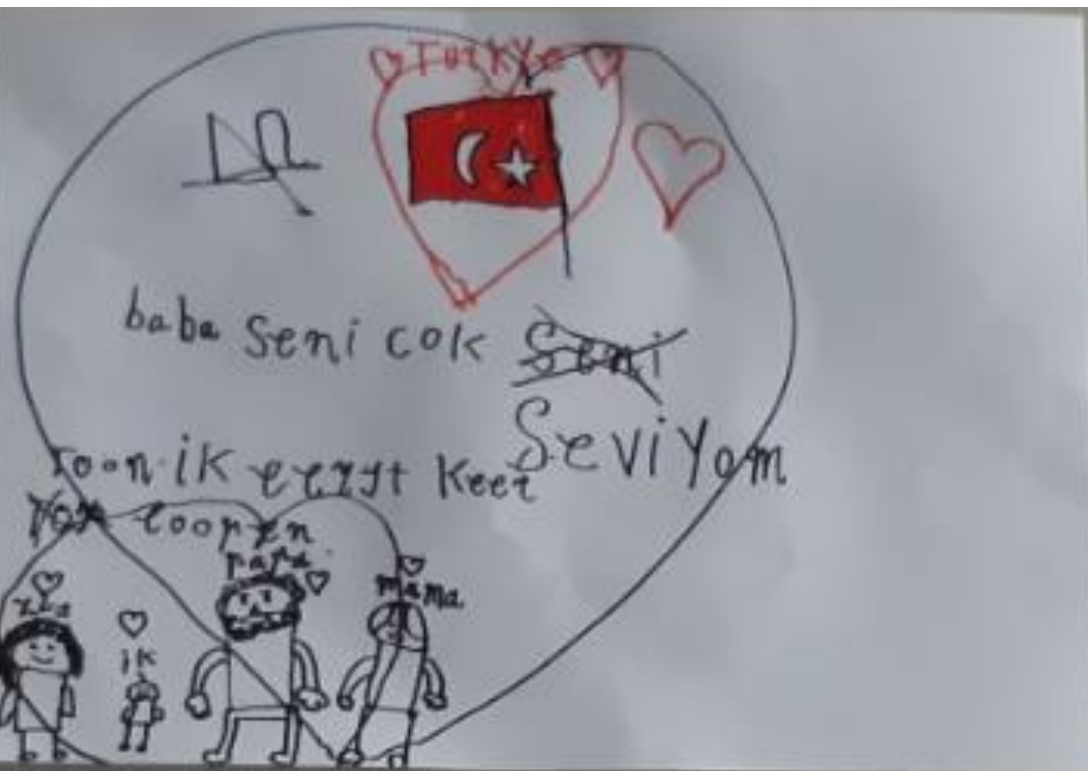 Turkye
baba seni cok Seni
Seviyom
toen ik eerst keer
loopen
papa
mama
ik